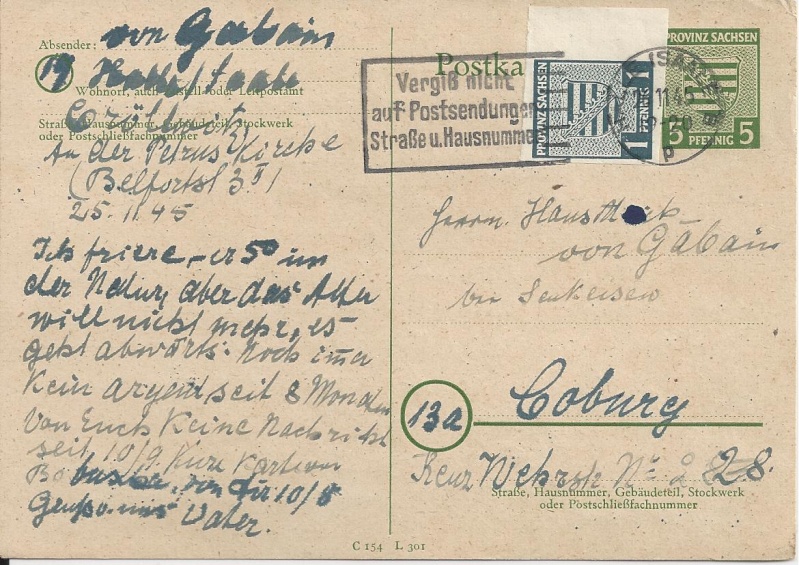 Absender: von Gabain
19 Halle/Saale
Wohnort, auch Zustell- oder Leitpostamt
Cröllwitz
Straße, Hausnummer, Gebäudeteil, Stockwerk
oder Postschließfachnummer
An der Petrus Kirche
(Belfortst 3 II)
25.11.45
Ich friere, im
der Natur, aber das Alter
will nicht mehr, es
geht abwärts. Noch immer
Kein argent seit 8 Monaten
Von Euch Keine Nachricht
seit 10/9 Kurze Karte von
von Dir 10/8
Vater.
Postka
Vergiß nicht
auf Postsendungen
Straße u. Hausnummer
PROVINZ SACHSEN
1 PFENNIG
PROVINZ SACHSEN
5 PFENNIG 5
Herrn Hans
von Gabain
bei
13a Coburg
Wehrstr No 28
Straße, Hausnummer, Gebäudeteil, Stockwerk
oder Postschließfachnummer
C 154 L 301